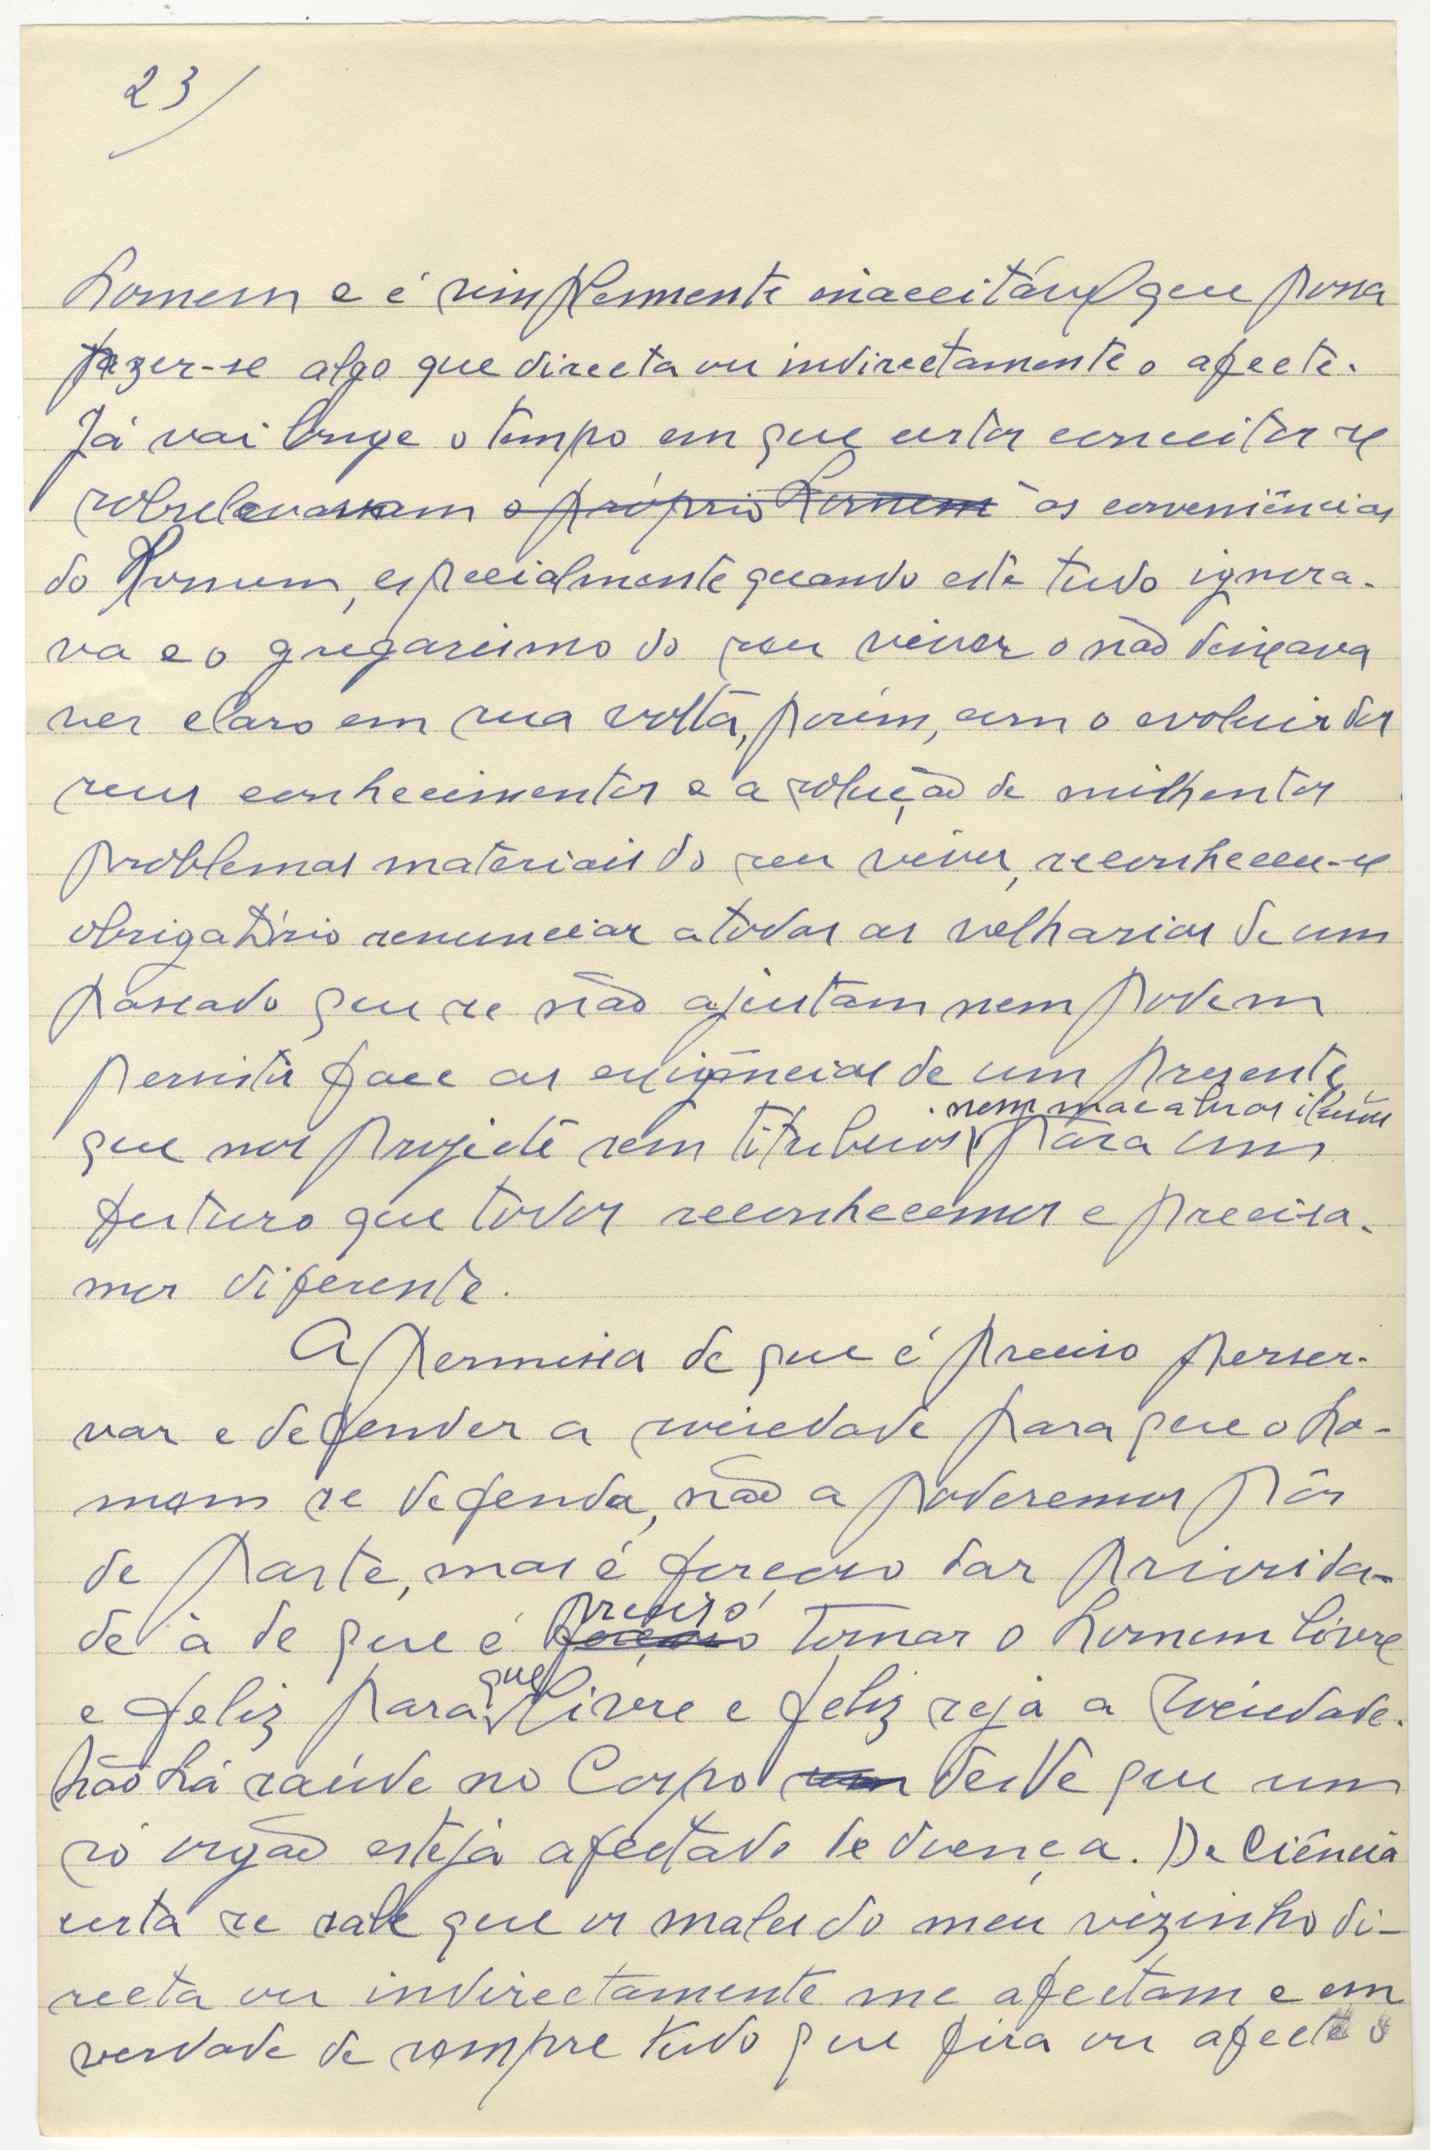 23/
homem e é simplesmente inaceitável que possa
fazer-se algo que directa ou indirectamente o afecte.
Já vai longe o tempo em que certos conceitos se
sobrelevavam o próprio homem às conveniências
do Homem, especialmente quando este tudo ignora-
va e o gregarismo do seu viver o não deixava
ver claro em sua volta, porém, com o evoluir dos
seus conhecimentos e a solução de milhentos
problemas materiais do seu viver, reconheceu-se
obrigatório renunciar a todas as velharias de um
passado que se não ajustam nem podem
persistir face as exigências de um presente
nem macabras
que nos projecte sem titubeios para um
futuro que todos reconhecemos e precisa-
mos diferente.
A permissa de que é preciso perser-
var e defender a sociedade para que o ho-
mem se defenda, não a poderemos pôr
de parte, mas é forçoso dar priorida-
preciso
de à de que é forçoso tornar o homem livre
que
e feliz para livre e feliz seja a sociedade.
Não há saúde no Corpo um desde que um
só orgão esteja afectado de doença. De Ciência
certa se sabe que os males do meu vizinho di-
recta ou indirectamente me afectam e em
verdade de sempre tudo que fira ou afecte o